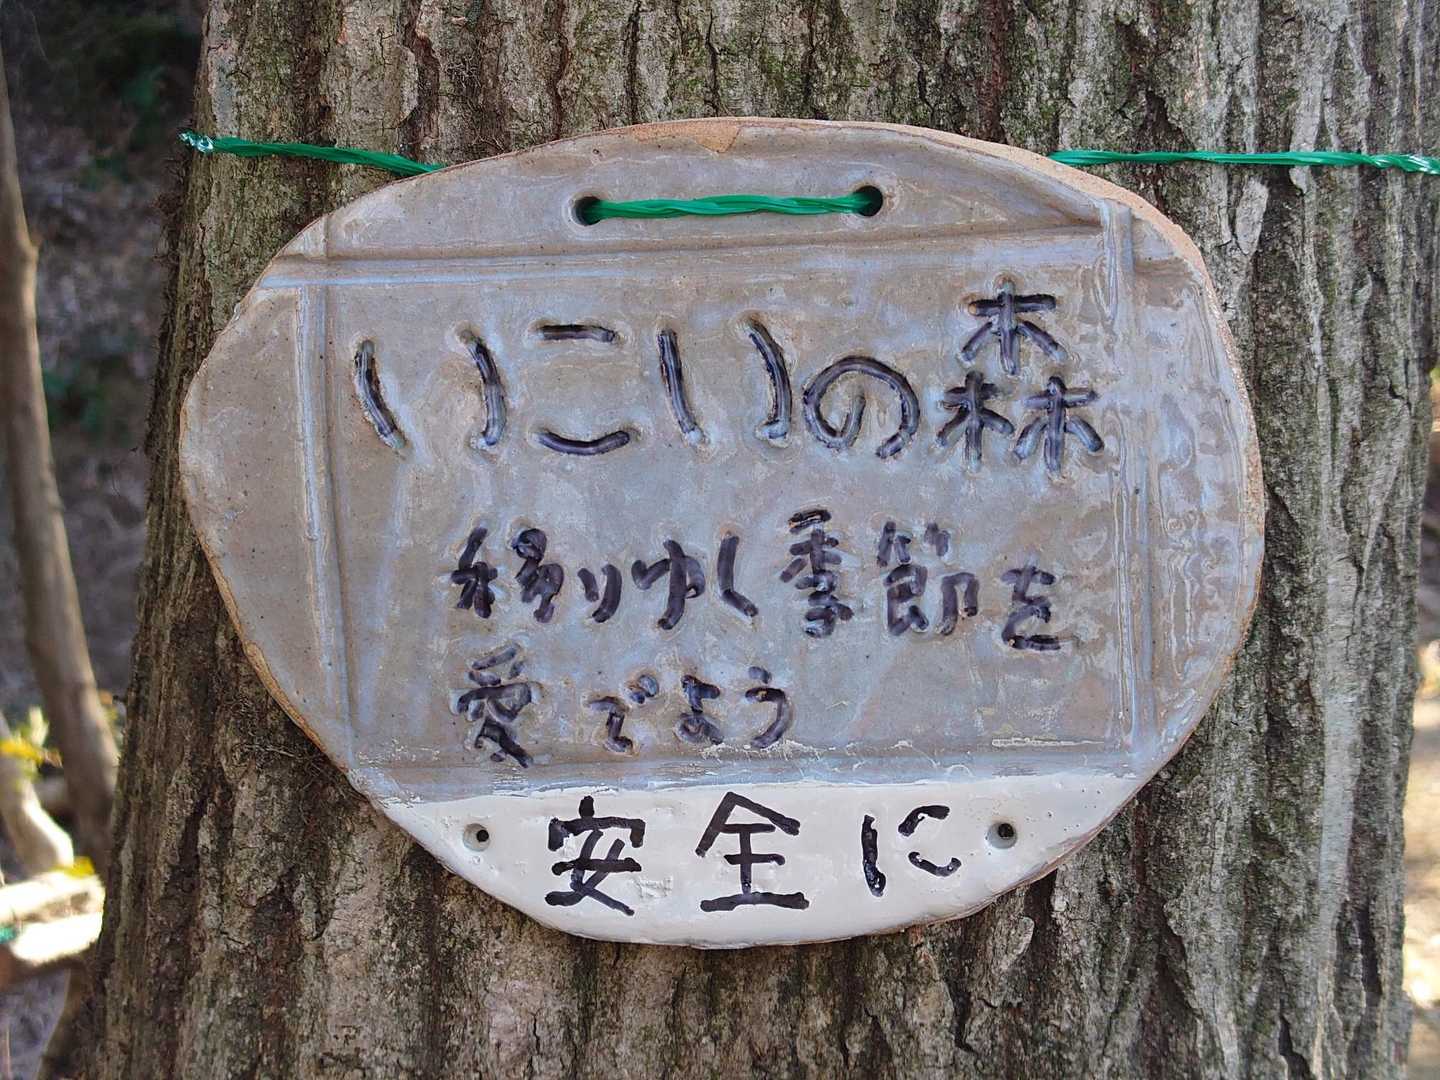 いこいの森
移りゆし季節を
愛でよう
安全に